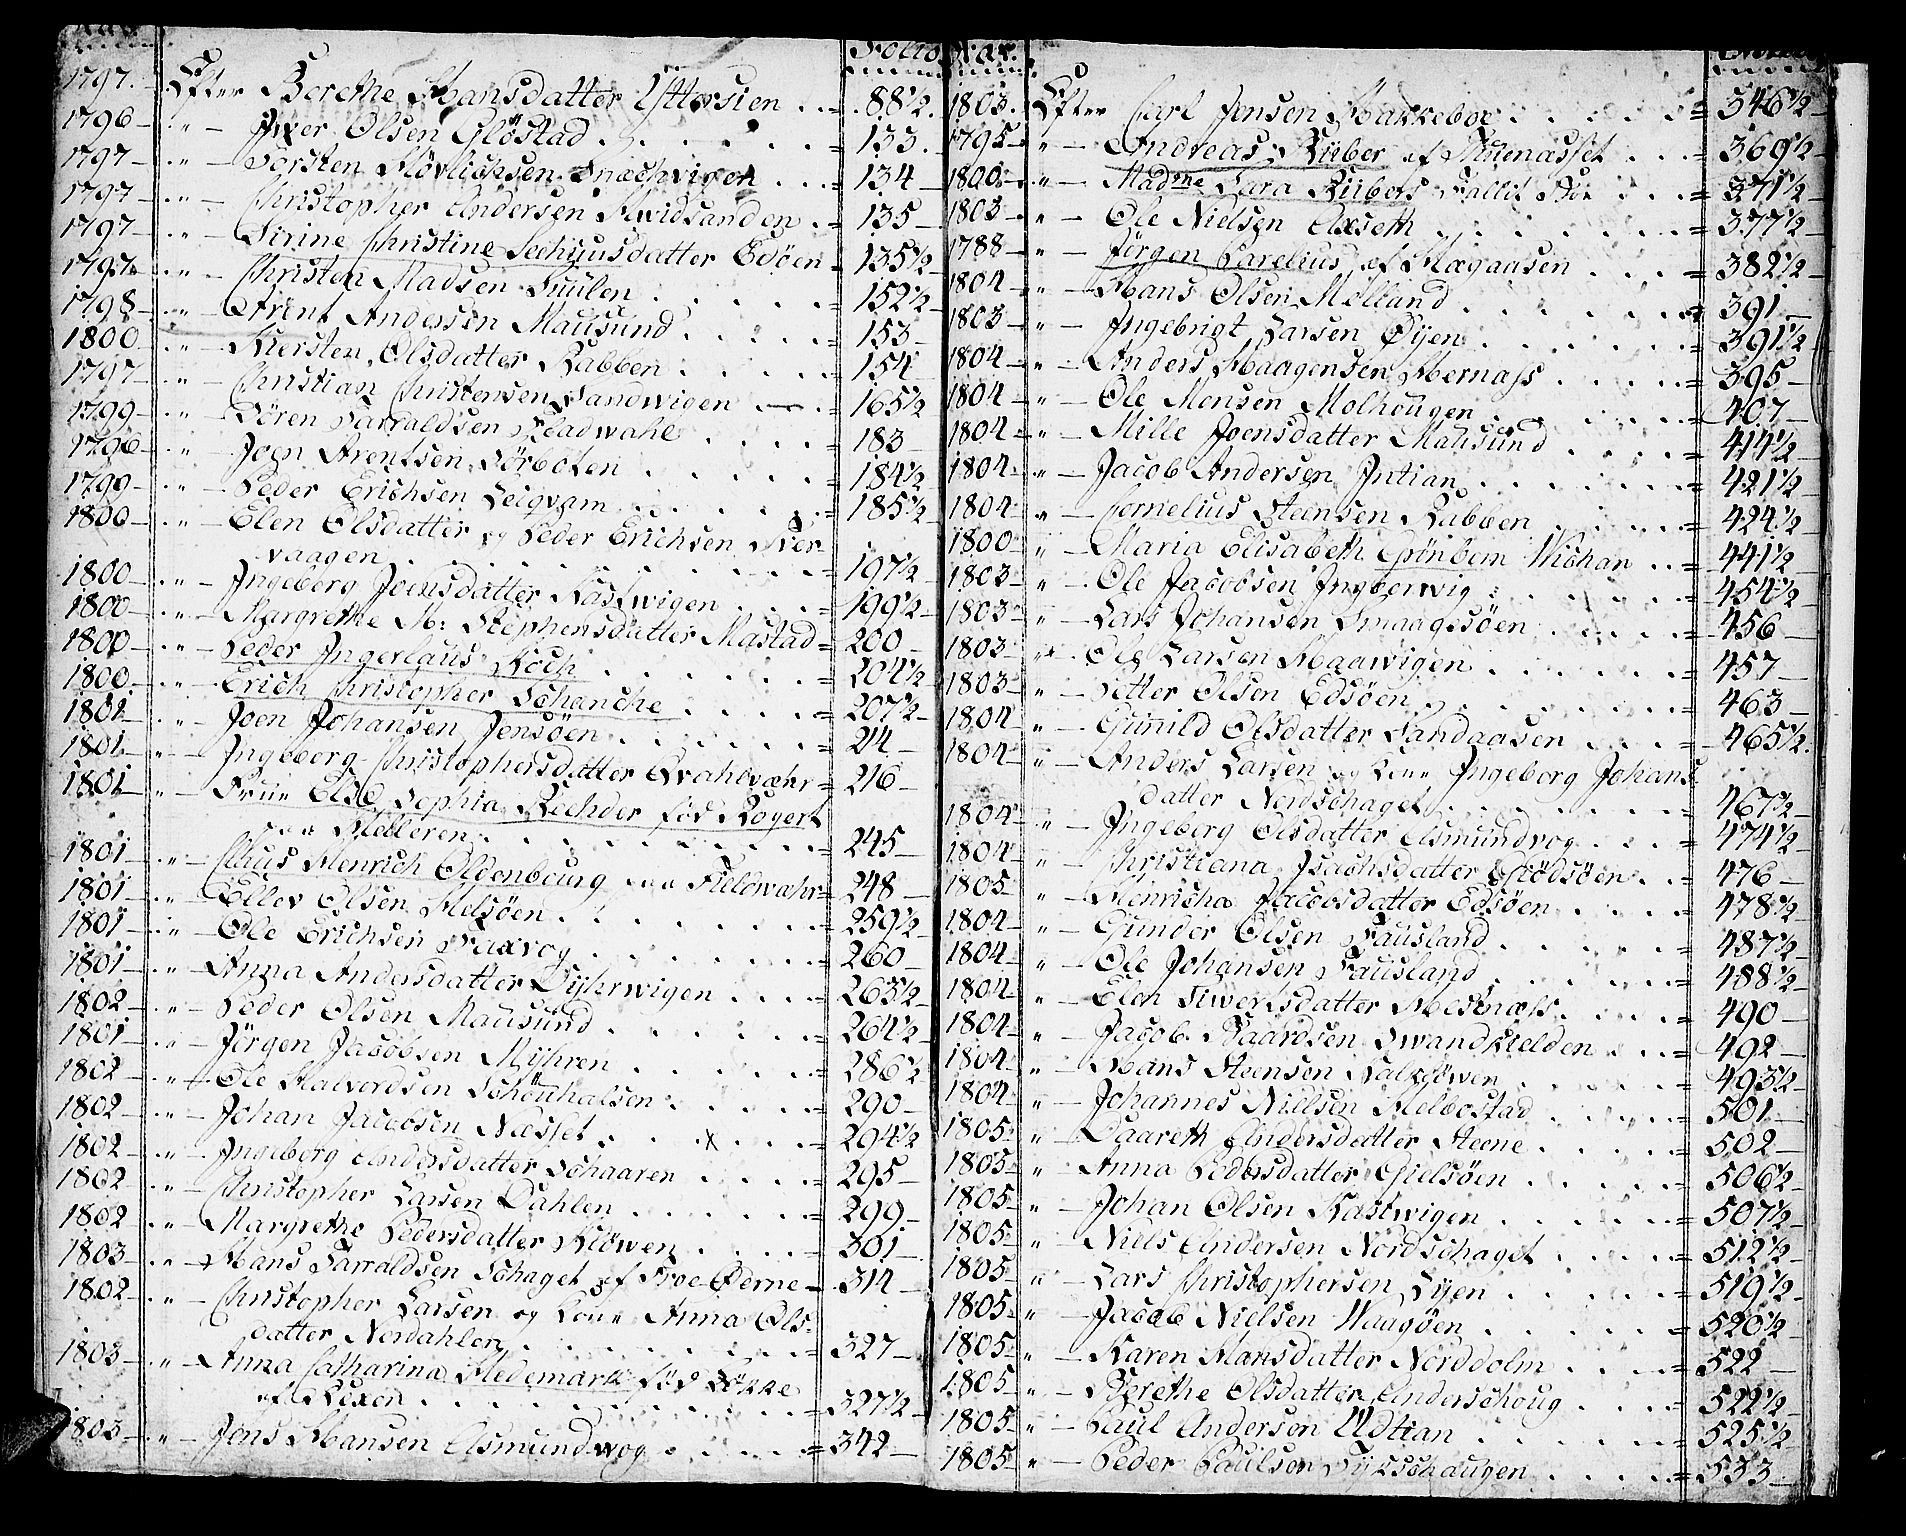 Aar Folio
1797. Efter Berethe Hansdatter Yttersien . . = 88½.
1796 - „ - Iver Olsen Gløstad . . . = 133.
1797 - „ - Torsten Snechvigen . . = 134
1797 - „ - Christopher Andersen Qwidsanden . = 135
1797 - „ - Sirine Christine Sechuusdatter Edøen = 135½
1797. „ - Christen Madsen Fuulen . . . = 152½
1798 - „ - Arent Andersen Mausund . . . = 153
1800 „ - Kiersten Olsdatter Rabben . . . = 154
1797 - „ - Christian Christensen Sandwigen . = 165½
1799 - „ - Søren Harraldsen Kladwahl . . . = 183
1796 - „ Joen Arentsen Sørboten . . . = 184½
1799 - „ - Peder Erichsen Leigvam . . . = 185½
1800 - „ - Elen Olsdatter og Peder Erichsen Ner-
vaagen . . . = 197½
1800 - „ - Ingeborg Joensdatter Kastwigen . . = 199½
1800 - „ - Margrethe M: Stephensdatter Mastad = 200
1800 - „ - Peder Ingerlaus Koch . . . = 204½
1800 - „ - Erich Christopher Schanche . . . = 207½
1801 - „ - Joen Johansen Jensøen . . . = 214
1801. - „ - Ingeborg Christophersdatter Qvahlvæhr = 216
1801 - „ - Frue Else Sophia Rechder fød Rogert
paa Melleren . . . = 245
1801 - „ - Claus Henrich Oldenbourg paa Fieldwæhr = 248
1801 - „ - Ellev Olsen Melsøen . . . = 259½
1801 - „ - Ole Erichsen Faxvog . . . = 260
1801 - „ - Anna Andersdatter Dyhrwigen . . . = 263½
1802 - „ - Peder Olsen Mausund . . . = 264½
1801 - „ - Jørgen Jacobsen Myhren . . . = 286½
1802 - „ - Ole Halvordsen Schönhalsen . . . = 290
1802 - „ - Johan Jacobsen Næsset . . x . = 294½
1802 - „ - Ingeborg Andersdatter Schaaren . . . = 295
1802 - „ - Christopher Larsen Dahlen . . . = 299
1802 - „ - Margrethe Pedersdatter Kløwen . . . = 301
1803 - „ - Hans Harraldsen Schaget af Froe Øerne = 314
1802 - „ - Christopher Larsen og Kone Anna Ols-
datter Nordahlen . . . = 327
1803 - „ - Anna Catharina Hedemark fød Løkke
af Kixen . . . = 327½
1803 - „ - Jens Hansen Asmundwog . . . = 342
Aar
1803. Efter Carl Jensen Bakkeboe . . . = 346½
1795 - „ - Andreas Riiber af Thuenæsset . . = 369½
1800. „ - Madme Sara Riibers Fallit Boe . . = 371½
1803 - „ - Ole Nielsen Axseth . . . = 377½
1788 - „ - Jørgen Parelius af Magaasen . . = 382½
1804 „ - Hans Olsen Melland . . . 391
1803 - „ - Ingebrigt Larsen Øyen . . . = 391½
1804 „ - Anders Haagensen Hernæss . . . = 395
1804 „ - Ole Monsen Molhougen . . . = 407
1804 „ - Mille Joensdatter Mausund . . . = 414½
1804 „ - Jacob Andersen Intian . . . = 421½
1804 „ - Cornelius Steensen Rabben . . . = 424½
1800 „ - Maria Elisabeth Grønbem Wichan . . = 441½
1803 „ - Ole Jacobsen Ingberwig . . . = 454½
1803 „ - Lars Johansen Smaagesøen . . . = 456
1803 „ Ole Larsen Haawigen . . . = 457
1803 „ - Petter Olsen Edsøen . . . = 463
1804 „ - Gunild Olsdatter Sandaasen . . . = 465½.
1804 „ - Anders Larsen og Kone Ingeborg Johans-
datter Nordschaget . . . = 467½
1804 „ - Ingeborg Olsdatter Asmundvog . . . = 474½
1804 „ - Christiana Isachsdatter Grødsøen . . = 476
1805 „ - Henricha Jacobsdatter Edsøen . . . = 478½
1804 „ - Gunder Olsen Fausland . . . = 487½
1804 „ - Ole Johansen Fausland . . . = 488½
1804 „ - Elen Siwertsdatter Mesnæss . . . = 490
1804 „ - Jacob Baardsen Swandkielden . . = 492
1804 „ - Hans Steensen . . . = 493½
1804 „ - Johannes Nielsen Melbostad . . . = 501
1805 „ - Daareth Andersdatter Steene . . . = 502
1805 „ - Anna Pedersdatter Gielsøen . . . = 506½
1805 „ - Johan Olsen Kastwigen . . . = 507½
1805 „ - Niels Andersen Nordschaget . . . = 512½
1805 „ - Lars Christophersen Lyen . . . = 519½
1805 „ - Jacob Nielsen Waagøen . . . = 520½
1805 „ - Karen Hansdatter Norddolm . . . = 522
1805 „ - Berethe Olsdatter Anderschoug . . . = 522½
1805 „ - Paul Andersen Udtian . . . = 525½
1805 „ - Peder Paulsen Fyrschaugen . . . = 533